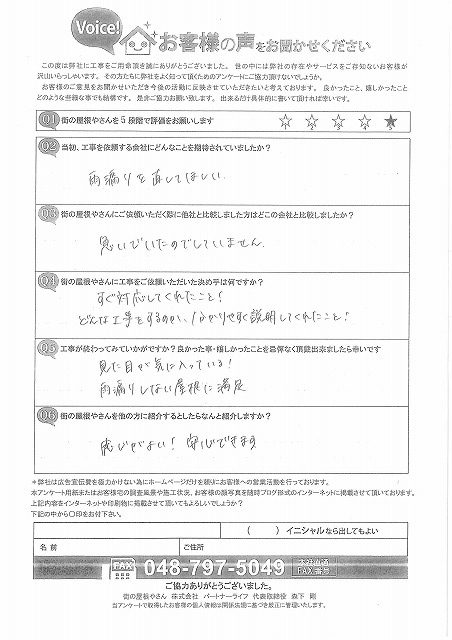 Voice! お客様の声をお聞かせください
この度は弊社に工事をご用命頂き誠にありがとうございました。世の中には弊社の存在やサービスをご存知ないお客様が
沢山いらっしゃいます。その方たちに弊社をよく知って頂くためのアンケートにご協力頂けないでしょうか。
お客様のご意見をお聞かせいただき今後の活動に反映させていただきたいと考えております。良かったこと、嬉しかったこと
どのような些細な事でも結構です。是非ご協力お願い致します。出来るだけ具体的に書いて頂ければ幸いです。
Q1 街の屋根やさんを5段階で評価をお願いします ☆ ☆ ☆ ☆ ★
Q2 当初、工事を依頼する会社にどんなことを期待されていましたか?
雨漏りを直してほしい
Q3 街の屋根やさんにご依頼いただく際に他社と比較しました方はどこの会社と比較しましたか?
急いでいたのでしていません
Q4 街の屋根やさんに工事をご依頼いただいた決め手は何ですか?
すぐ対応してくれたこと!
どんな工事をするのか、わかりやすく説明してくれたこと!
Q5 工事が終わってみていかがですか?良かった事・嬉しかったことを忌憚なく頂戴出来ましたら幸いです
見た目が気に入っている!
雨漏りしない屋根に満足
Q6 街の屋根やさんを他の方に紹介するとしたらなんと紹介しますか?
感じがよい! 安心できます
*弊社は広告宣伝費を極力かけない為にホームページだけを頼りにお客様への営業活動を行っております。
本アンケート用紙またはお客様宅の調査風景や施工状況、お客様の顔写真を随時ブログ形式のインターネットに掲載させて頂いております。
上記内容をインターネットや印刷物に掲載させて頂いてもよろしいでしょうか?
下記の中から〇印をお付下さい。
( ) イニシャルなら出してもよい
名前 ご住所
FAX 048-797-5049 本社直通 FAX番号
ご協力ありがとうございました。
街の屋根やさん 株式会社 パートナーライフ 代表取締役 森下 剛
当アンケートで取得したお客様の個人情報は関係法規に基づき厳正に管理いたします。